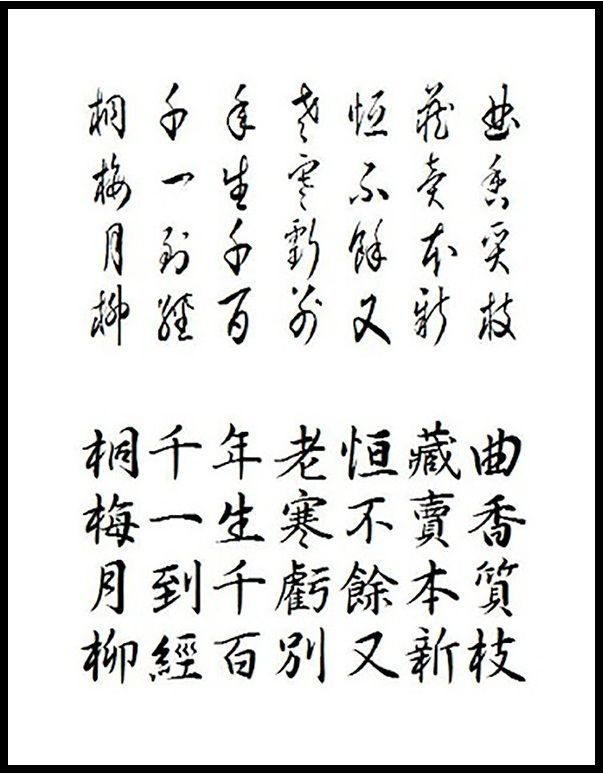 桐千年老恒藏曲
梅一生寒不賣香
月到千虧餘本質
柳經百別又新枝
桐千年老恒藏曲
梅一生寒不賣香
月到千虧餘本質
柳經百別又新枝